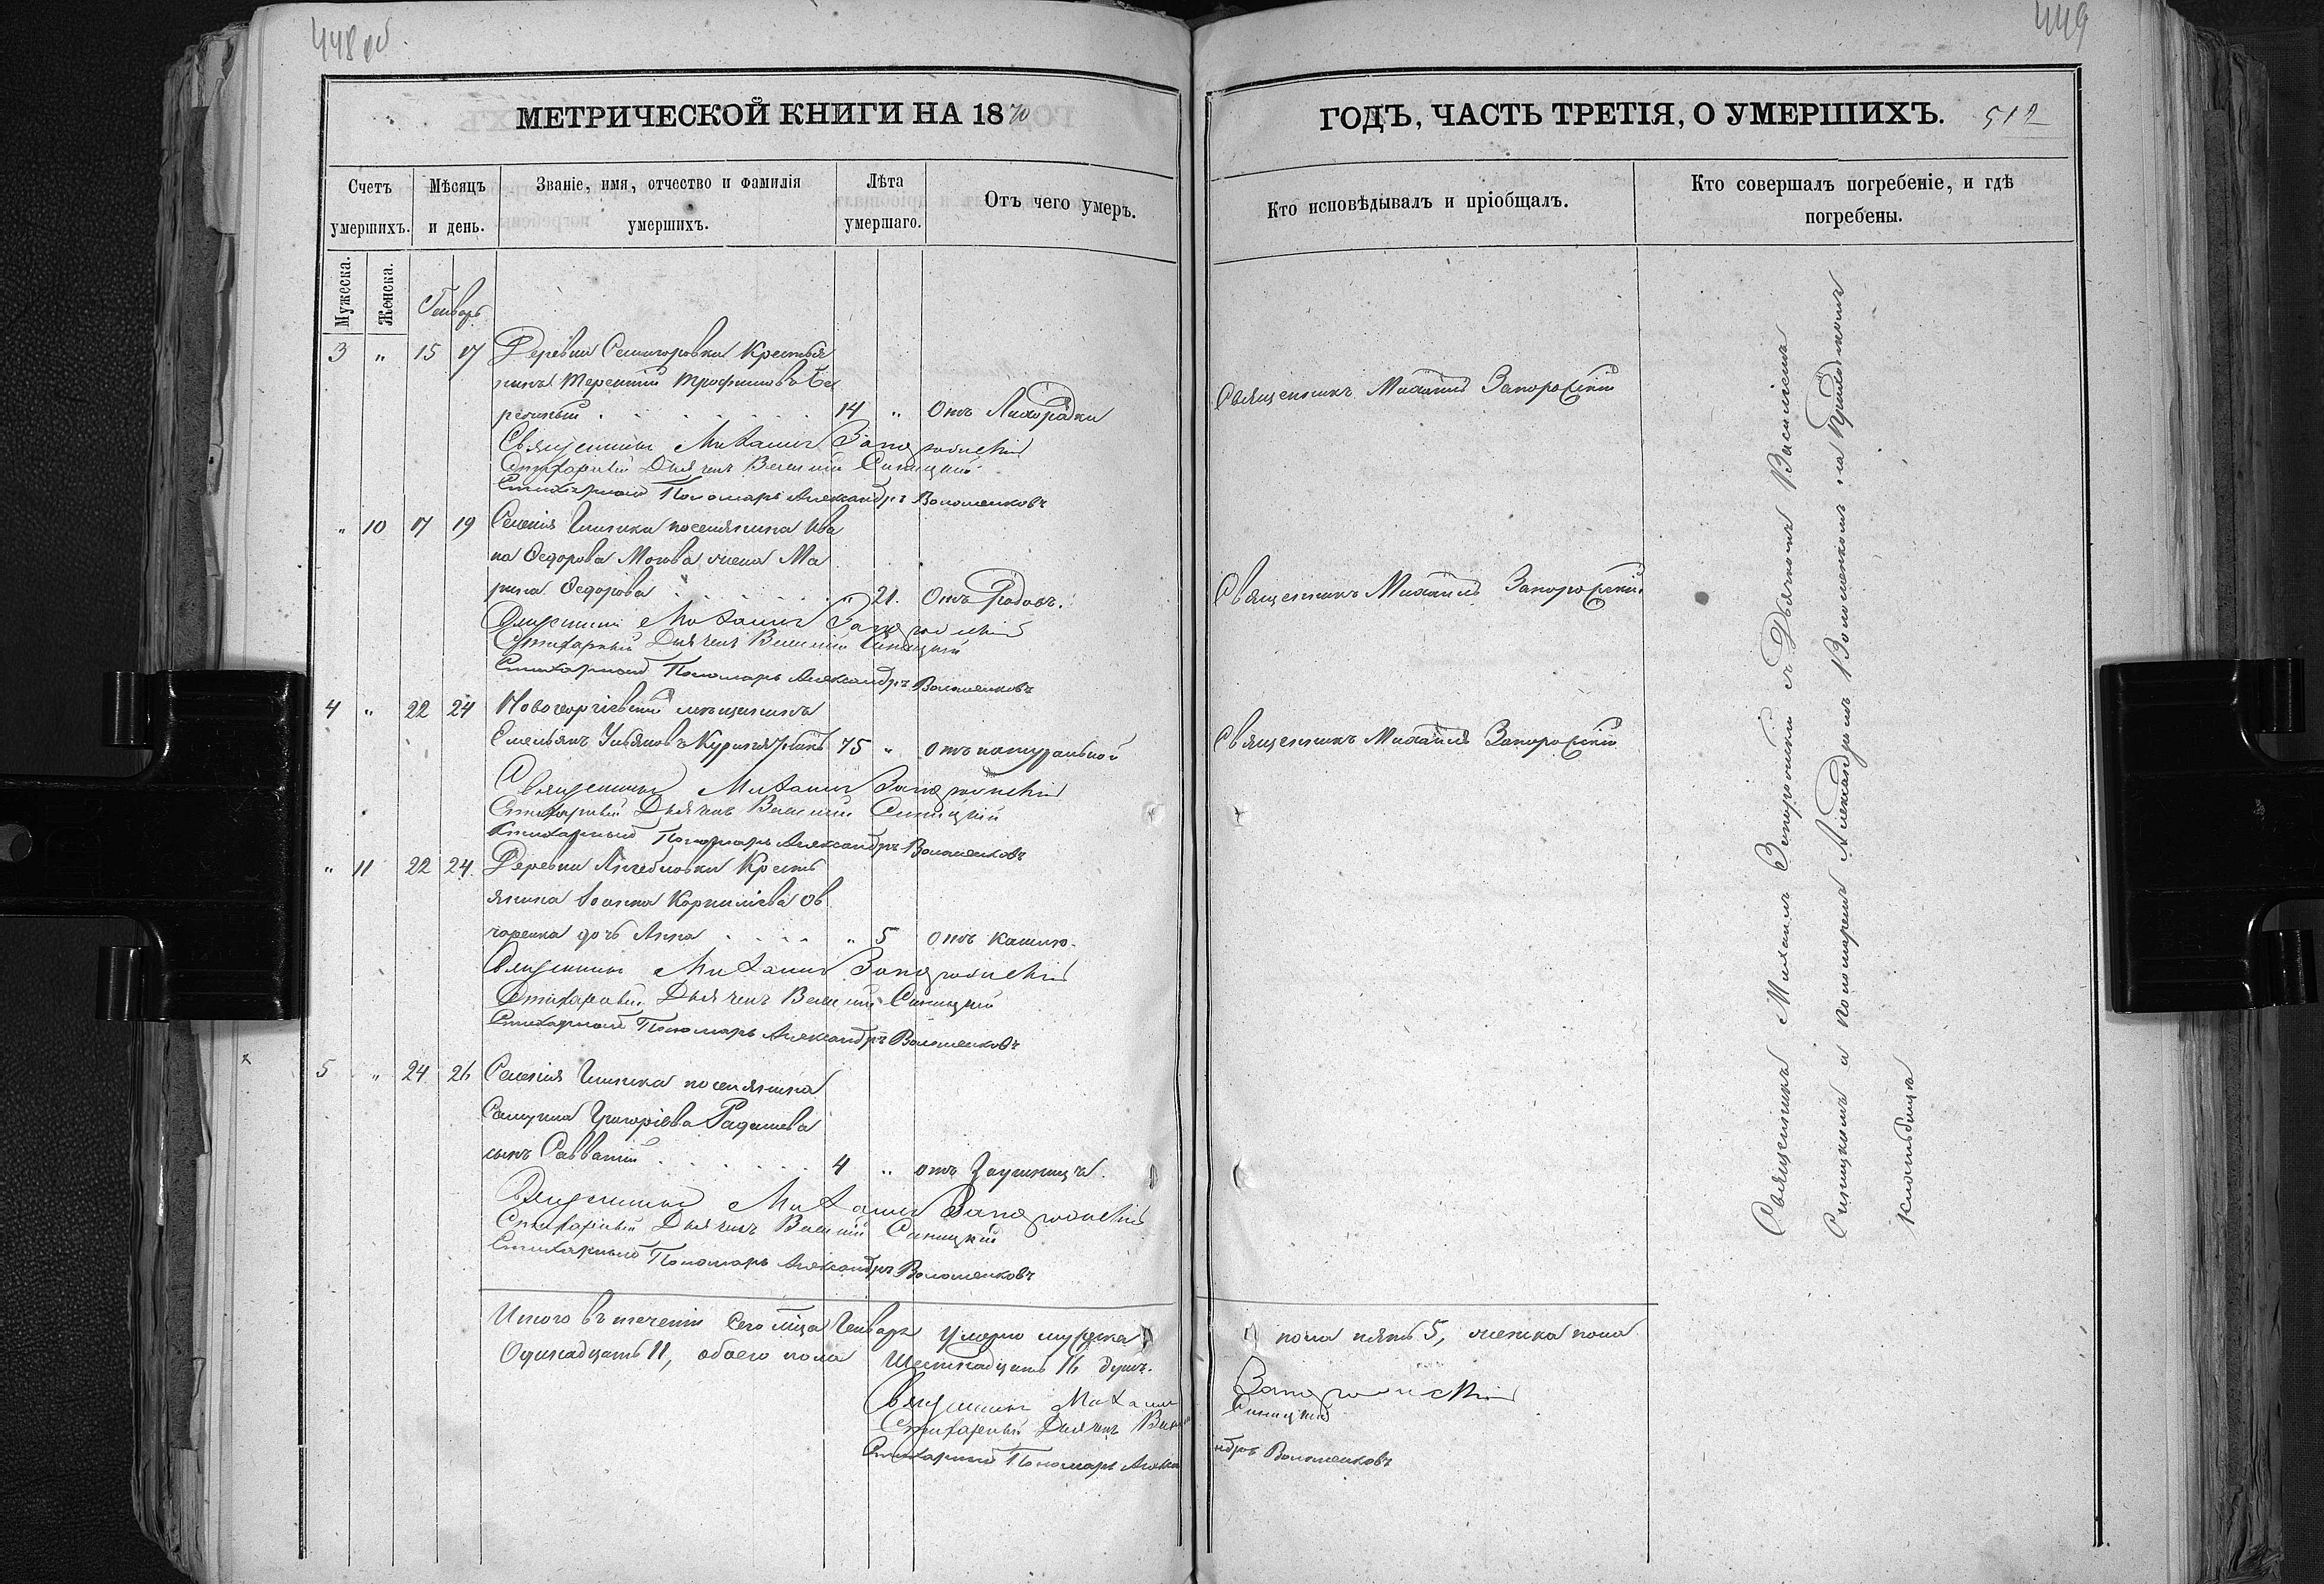 448 об
МЕТРИЧЕСКОЙ КНИГИ НА 1870
Счетъ умершихъ.
Мѣсяцъ и день.
Званіе, имя, отчество и фамилія умершихъ.
Лѣта умершаго.
Отъ чего умеръ.
Мужеска.
Женска.
Генварь
3 " 15 17 Деревни Семигоровки Крестья
нинъ Терентій Трофимовъ
14 " Отъ Лихорадки
Священникъ Михаилъ Запорожскій
Стихарный Дьячекъ Василій Синицкій
Стихарный Пономарь Александръ Волошенковъ
" 10 17 19 Селенія Глинска поселянина Ива
на Федорова Мотова жена Ма
рина Федорова " 21 Отъ Родовъ.
Священникъ Михаилъ Запорожскій
Стихарный Дьячекъ Василій Синицкій
Стихарный Пономарь Александръ Волошенковъ
4 " 22 24 Новогеоргіевскій мещанинъ
Емельянъ Ульяновъ 75 " отъ натуральной
Священникъ Михаилъ Запорожскій
Стихарный Дьячекъ Василій Синицкій
Стихарный Пономарь Александръ Волошенковъ
" 11 22 24 Деревни Кресть
янина Іоанна Корнилієва Ов
чаренка дочь Анна " 5 Отъ кашлю.
Священникъ Михаилъ Запорожскій
Стихарный Дьячекъ Василій Синицкій
Стихарный Пономарь Александръ Волошенковъ
5 " 24 26 Селенія Глинска поселянина
Самуила Григоріева Радишева
сынъ Савватій 4 " отъ Заушницъ.
Священникъ Михаилъ Запорожскій
Стихарный Дьячекъ Василій Синицкій
Стихарный Пономарь Александръ Волошенковъ
Итого въ теченіи сего мца Генваря умерло мужеска
Одинадцать 11, обоего пола Шестнадцать 16 душъ.
Священникъ Михаилъ
Стихарный Дьячекъ
Стихарный Пономарь Алекса
449
ГОДЪ, ЧАСТЬ ТРЕТІЯ, О УМЕРШИХЪ. 512
Кто исповѣдывалъ и пріобщалъ.
Кто совершалъ погребеніе, и гдѣ погребены.
Священникъ Михаилъ Запорожскій
Священникъ Михаилъ Запорожскій
Священникъ Михаилъ Запорожскій
Священникъ Михаилъ Запорожскій съ Дьячкомъ Василіемъ
Синицкимъ и пономаремъ Александромъ Волошенкомъ на Приходскомъ
Кладбищѣ
пола пять 5, женска пола
Запорожскій
Синицкій
ндръ Волошенковъ